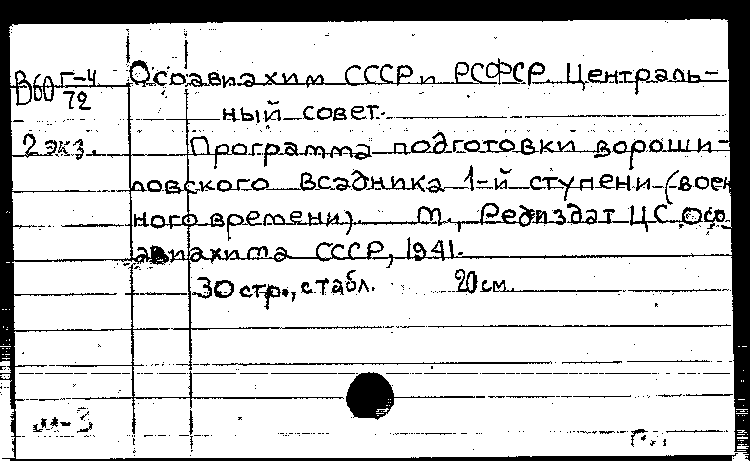 В60 Г-4/72
Осоавиахим СССР и РСФСР. Централь-
ный совет.
2 экз.
Программа подготовки вороши-
ловского всадника 1-й ступени (воен
ного времени). М., Редиздат ЦС Осо
авиахима СССР, 1941.
30 стр., с табл. 20 см.
м-3